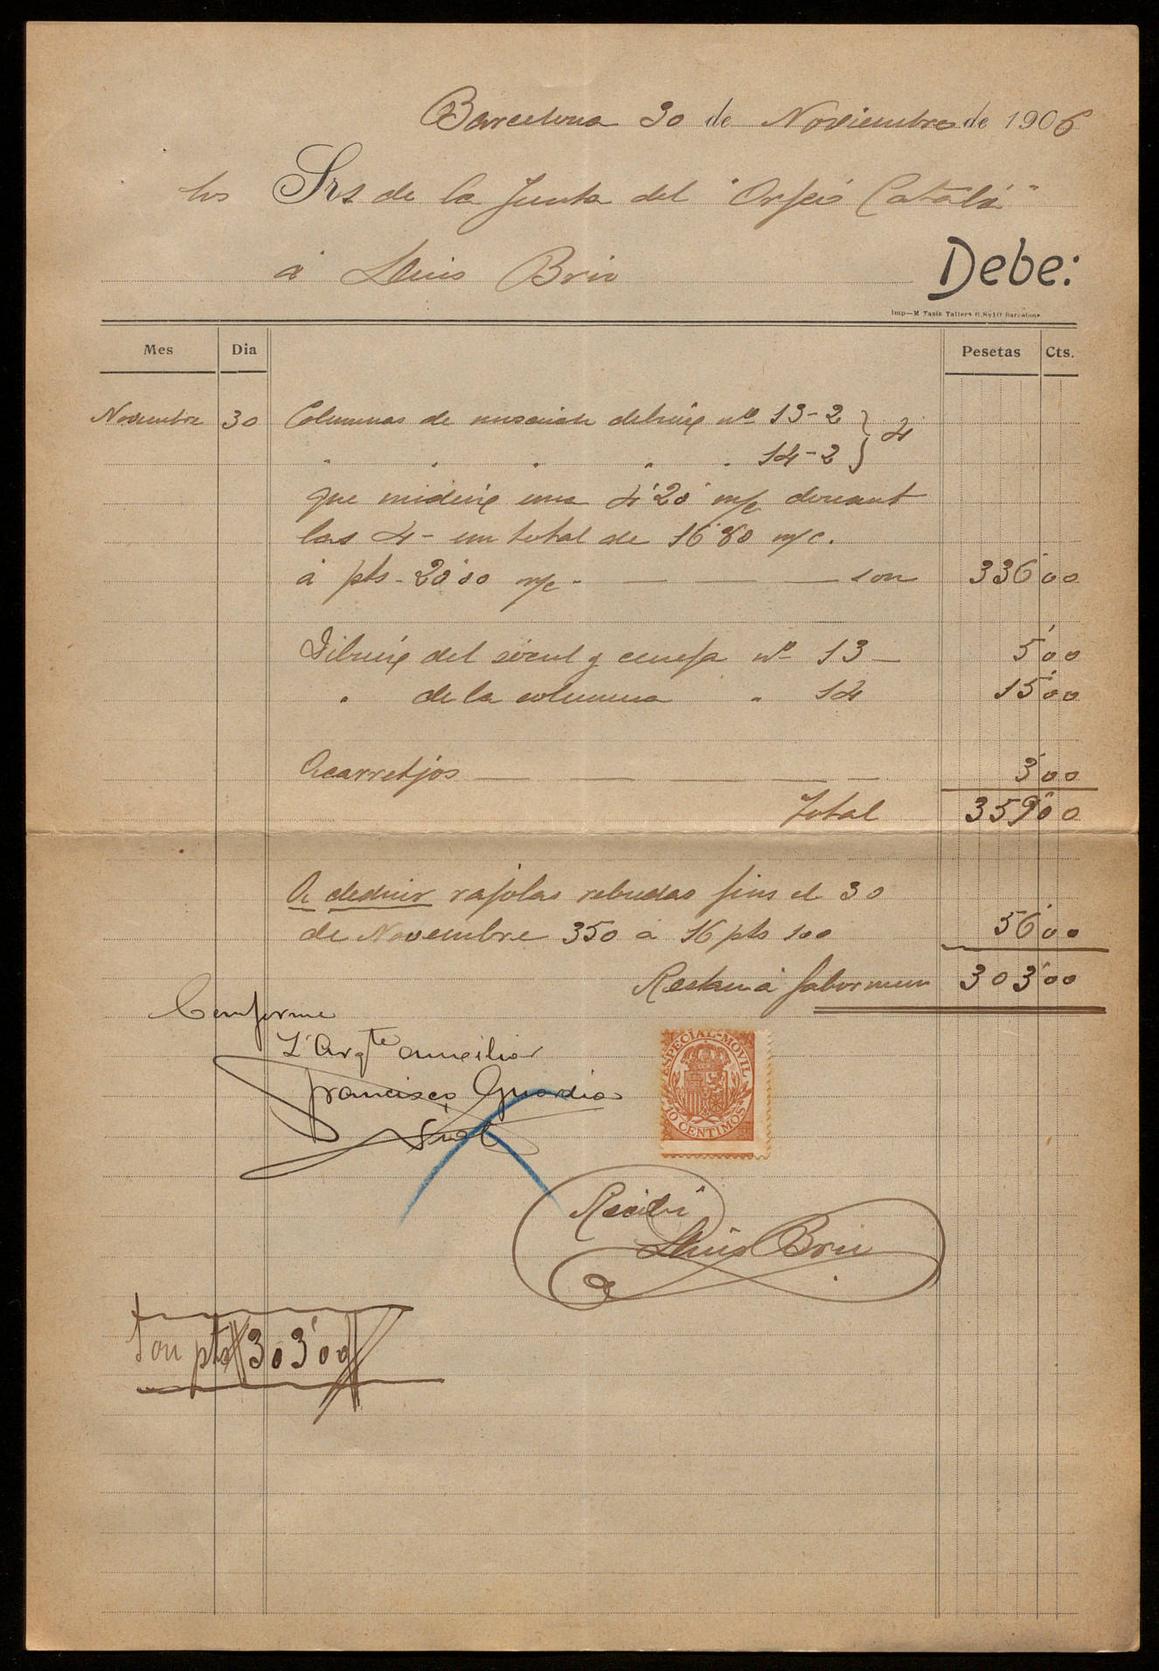 Barcelona 30 de Noviembre de 1906
los Srs de la Junta del "Orfeó Catalá"
á Lluis Brú
Debe:
Imp—M Tasis Tallers 6, 8 y 10 Barcelona
Mes Dia Pesetas Cts.
Novembre 30 Columnas de mosaich dibuix nº 13-2 } 4
" " " " " 14-2 }
que mideix una 4'20 m/c donant
las 4- un total de 16'80 m/c.
á pts- 20'00 m/c - — — — son 336'00
Dibuix del sócul y cenefa nº 13 — 5'00
" de la columna " 14 15'00
Acarretjos — — — — — 3'00
Total 359'00
A deduir rajolas rebudas fins el 30
de Novembre 350 a 16 pts 100 56'00
Restan á fabor meu 303'00
Conforme
L'Arqte auxiliar
Francisco Guardia
Vial
ESPECIAL-MOVIL
10 CENTIMOS
Recibí
Lluis Brú
Son pts 303'00